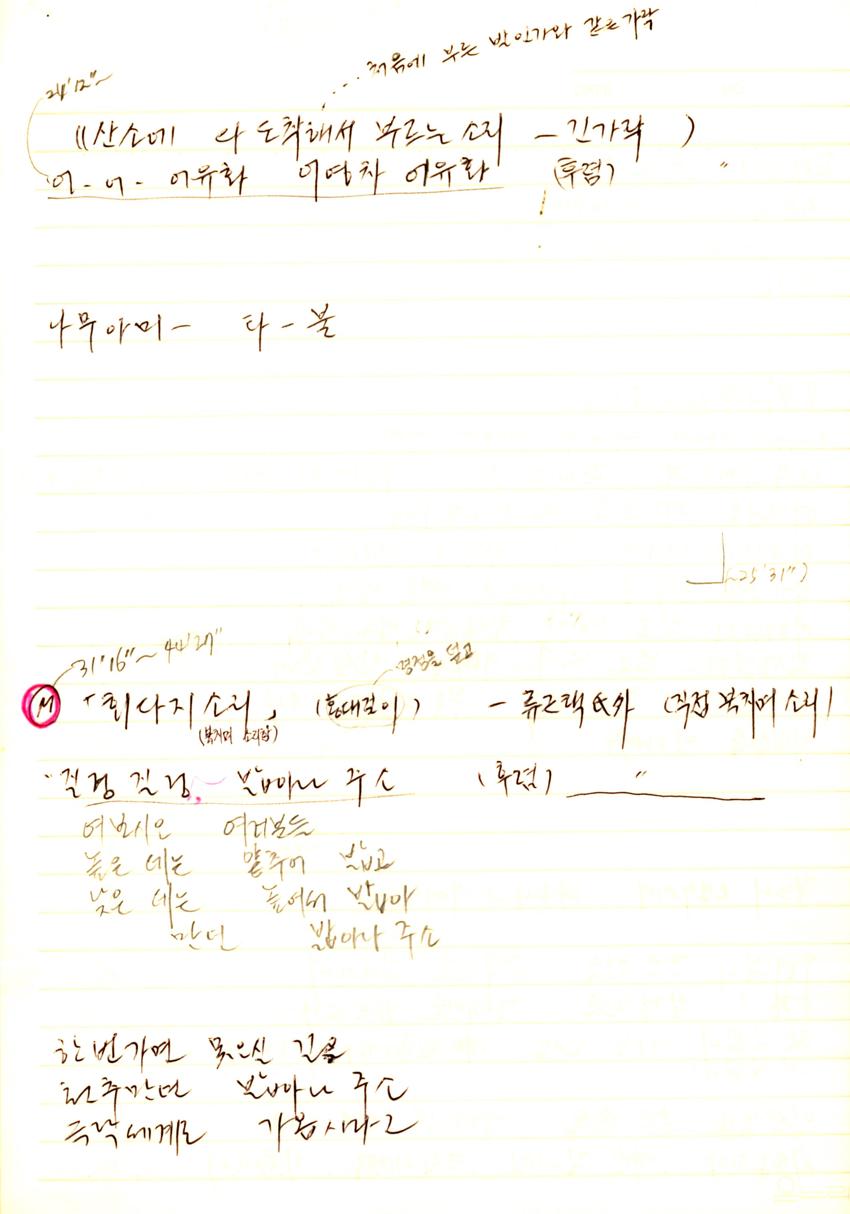 ···· 처음에 부르는 발인가와 같은 가락
24'12"~
((산소에 다 도착해서 부르는 소리 – 긴가락 )
"어 - 어 - 어유화 어영차 어유화 (후렴) "
나무아미 – 타 – 불
(~25'31")
31'16"~44'27"
「회다지 소리」 ( ) – 류근택 氏 外 (직접 북치며 소리)
(북치며 소리함)
"질경 질경 밟아나 주소 (후렴) "
여보시오 여러분들
높은 데는 맞추어 밟고
낮은 데는 높여서 밟아
만년 밟아나 주소
한번가면 못오실 길을
천추만년 밟아나 주소
극락세계로 가옵시다고